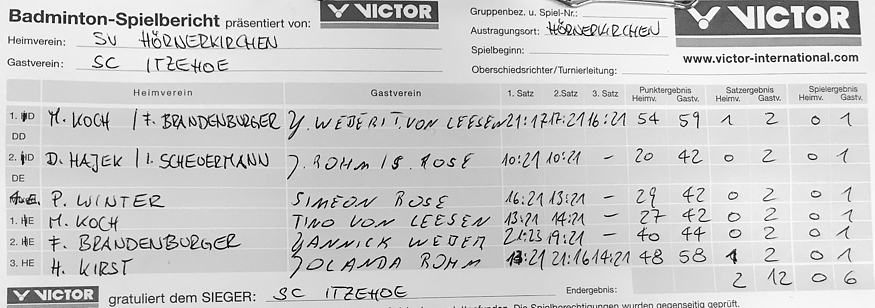 Badminton-Spielbericht präsentiert von: VICTOR
Heimverein: SV HÖRNERKIRCHEN
Gastverein: SC ITZEHOE
Gruppenbez. u. Spiel-Nr.:
Austragungsort: HÖRNERKIRCHEN
Spielbeginn:
Oberschiedsrichter/Turnierleitung:
VICTOR
www.victor-international.com
Heimverein Gastverein 1. Satz 2.Satz 3. Satz Punktergebnis Heimv. Gastv. Satzergebnis Heimv. Gastv. Spielergebnis Heimv. Gastv.
1. HD M. KOCH / F. BRANDENBURGER Y. WEDER / T. VON LEESEN 21:17 17:21 16:21 54 59 1 2 0 1
DD
2. HD D. HAJEK / I. SCHEUERMANN J. ROHM / S. ROSE 10:21 10:21 – 20 42 0 2 0 1
DE
P. WINTER SIMEON ROSE 16:21 13:21 – 29 42 0 2 0 1
1. HE M. KOCH TINO VON LEESEN 13:21 14:21 – 27 42 0 2 0 1
2. HE F. BRANDENBURGER YANNICK WEDER 21:23 19:21 – 40 44 0 2 0 1
3. HE H. KIRST JOLANDA ROHM 13:21 21:16 14:21 48 58 1 2 0 1
2 12 0 6
VICTOR gratuliert dem SIEGER: SC ITZEHOE Endergebnis:
Die Spielberechtigungen wurden gegenseitig geprüft.